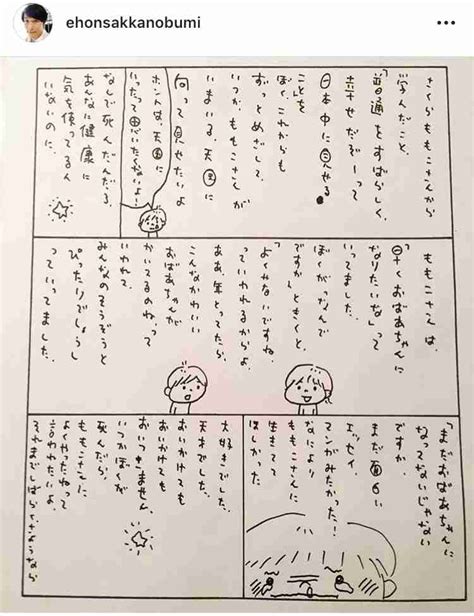 ehonsakkanobumi
さくらももこさんから
学んだこと、
「普通をすばらしく、
幸せだぞーって
日本中に見せる」
ことを
ぼく、これからも
ずっとめざして、
いつか、ももこさんが
いまいる、天国に
向って見せたいよ
ホントは、天国に
いったって言いたくないよー!
なんで死んだんだろ
あんなに健康に
気を使ってる人
いないのに、
ももこさんは、
「早くおばあちゃんに
なりたいな」って
いってました。
ぼくが「なんで
ですか」ときくと、
「よくみないですね、
っていわれるからよ。
ああ、年とってたら、
こんなかわいい
おばあちゃんが
かいてるのねって
いわれて、
みんなのそうぞうと
ぴったりでしょうし
っていってました。
「まだおばあちゃんに
なってないじゃない
ですか、
まだ面白い
エッセイ、
マンガみたかった!
なにより
ももこさんに
生きてて
ほしかった。
大好きでした。
天才でした。
おいかけても
おいかけても
おいつきません。
いつか、ぼくが
死んだら、
ももこさんに
よくやったねって
言われたいよ。
それまでしばらくさようなら